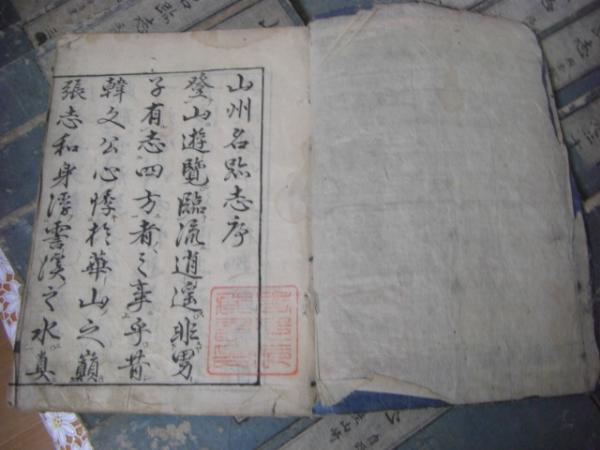 山州名跡志序
登山遊覽臨流逍遙非男
子有志四方者之事乎昔
韓文公心悸於華山之巔
張志和身浮雲溪之水真